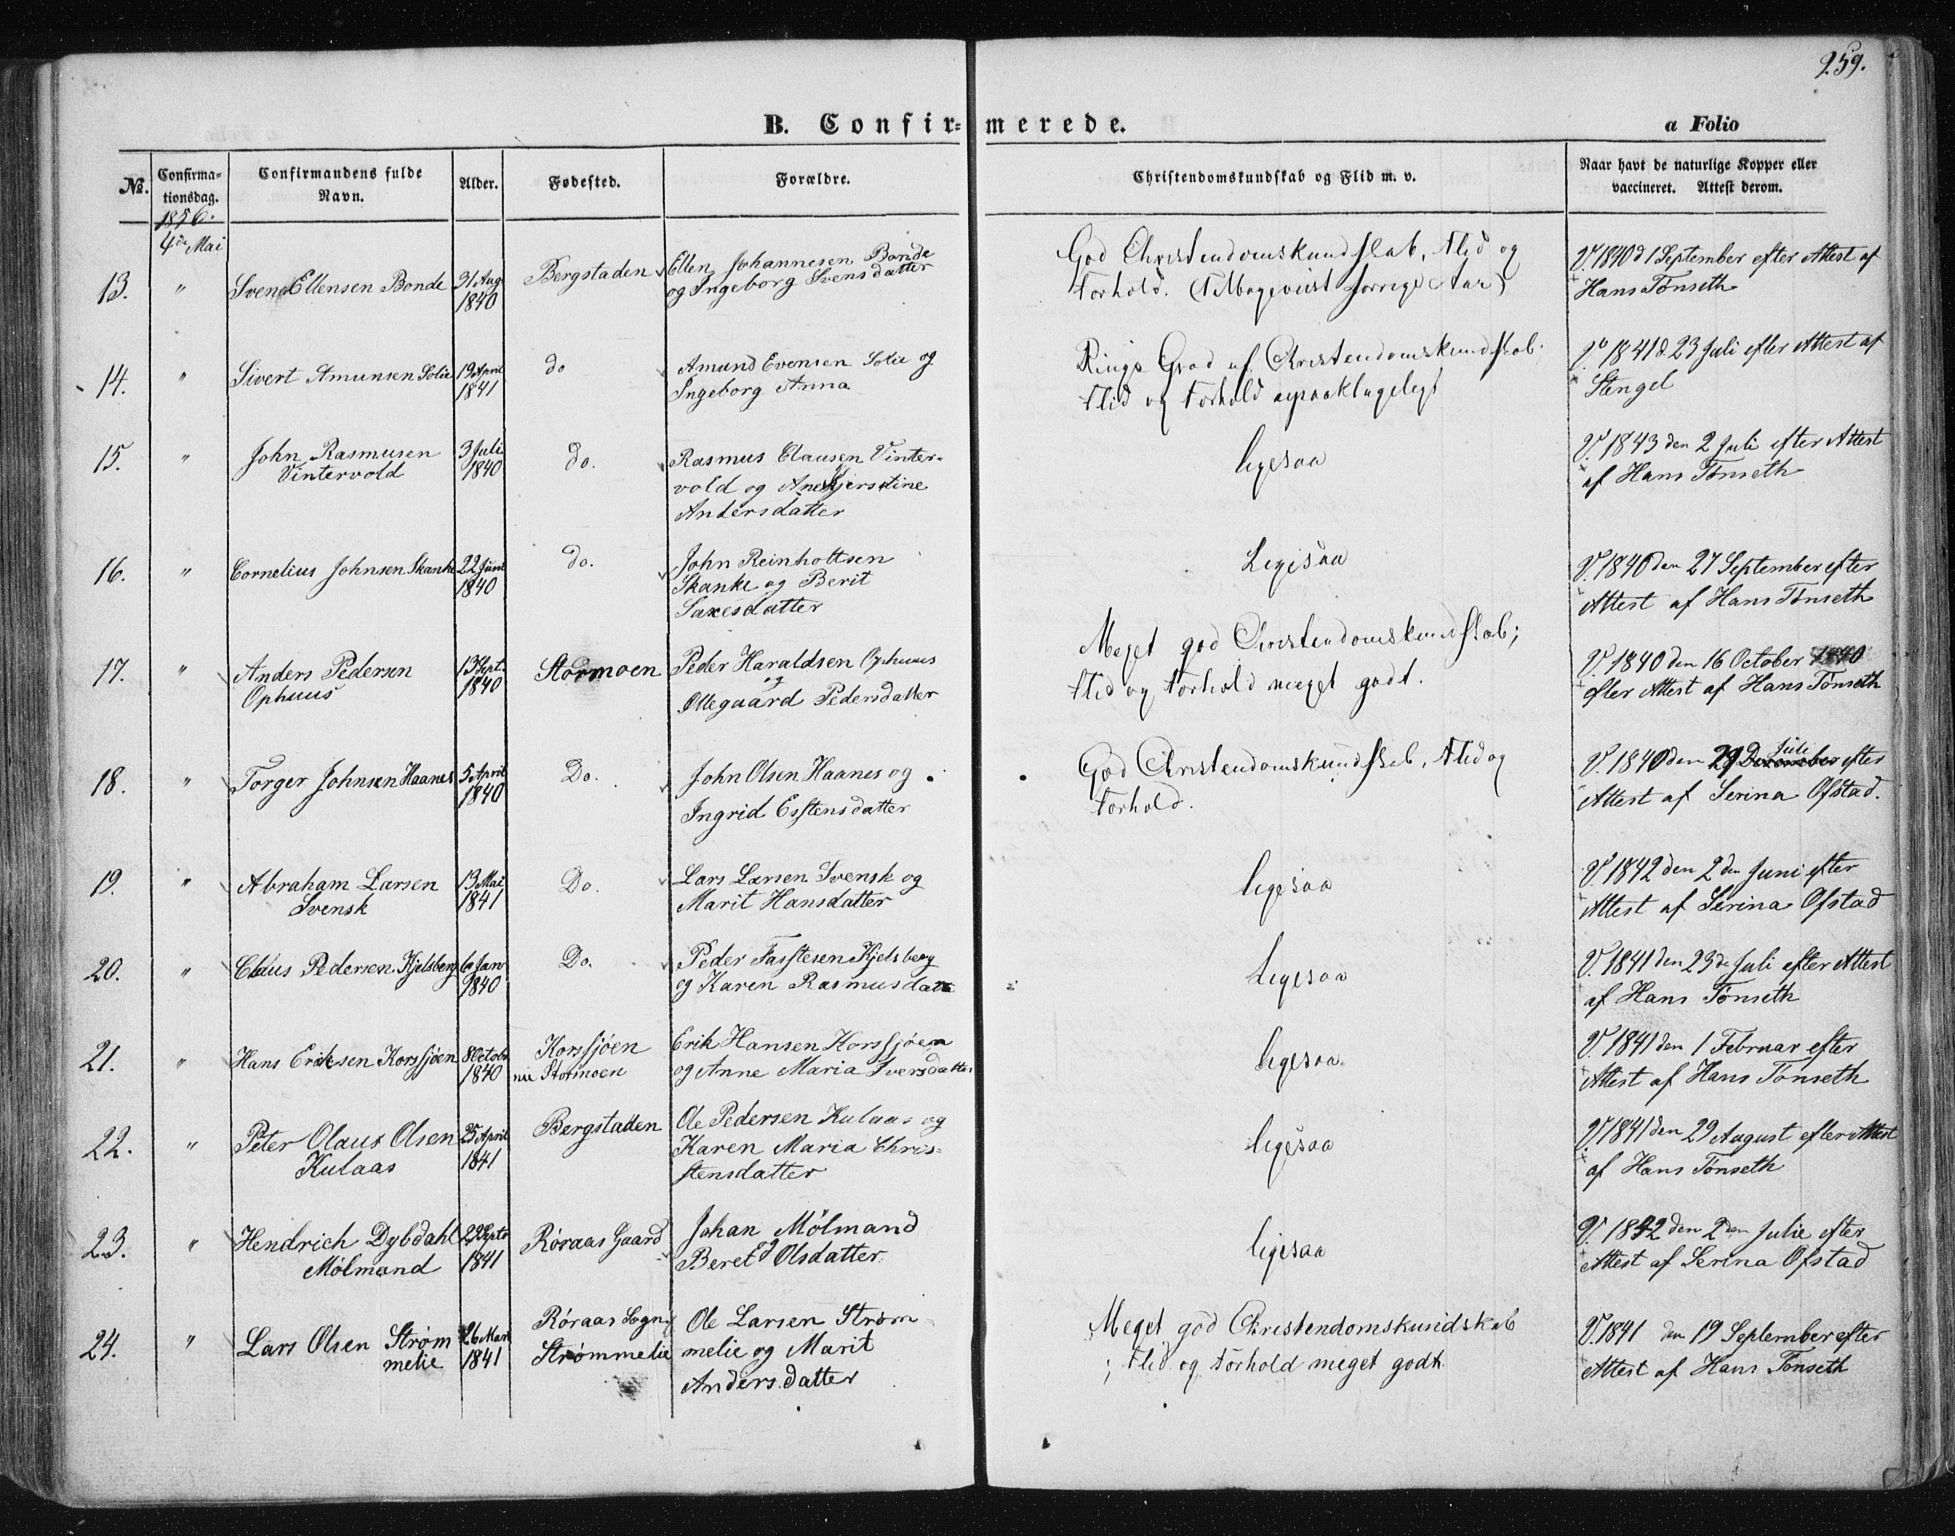 259.
B. Confir=merede.
a Folio
No.
Confirma-
tionsdag.
Confirmandens fulde
Navn.
Alder.
Fødested.
Forældre.
Christendomskundskab og Flid m. v.
Naar havt de naturlige Kopper eller
vaccineret. Attest derom.
1856.
4de Mai
13. " Svend Ellensen Bonde 31 Aug 1840 Bergstaden Ellen Johannesen Bonde
og Ingeborg Svensdatter
God Christendomskundskab, Flid og
Forhold. (Tilbageviist forrige Aar)
V. 1840 d 1 September efter Attest af
Hans Tønseth
14. " Sivert Amunsen Solie 19 April 1841 do Amund Evensen Solie og
Ingeborg Anna
Ringe Grad af Christendomskundskab.
Flid og Forhold upaaklageligt
1841 d. 23 Juli efter Attest af
Stengel
15. " John Rasmusen
Vintervold
3 Juli 1840 do. Rasmus Clausen Vinter-
vold og Ane Kjerstine
Andersdatter
ligesaa
V. 1843 den 2 Juli efter Attest
af Hans Tønseth
16. " Cornelius Johnsen Skanke 22 Juni 1840 do. John Reinholtsen
Skanke og Berit
Saxesdatter
Ligesaa
V. 1840 den 27 September efter
Attest af Hans Tønseth
17. " Anders Pedersen
Ophuus
13 Sept. 1840 Stormoen Peder Haraldsen Ophuus
og
Ollegaard Pedersdatter
Meget god Christendomskundskab;
Flid og Forhold meget godt.
V. 1840 den 16 October 1840
efter Attest af Hans Tønseth
18. " Torger Johnsen Haanes 5 April 1840 Do. John Olsen Haanes og
Ingrid Estensdatter
God Christendomskundskab, Flid og
Forhold.
Jule
V. 1840 den 29 December efter
Attest af Serina Ofstad.
19. " Abraham Larsen
Svensk
13 Mai 1841 Do. Lars Larsen Svensk og
Marit Hansdatter
ligesaa
V. 1842 den 2den Juni efter
Attest af Serina Ofstad
20. " Claus Pedersen Kjelsberg 6 Jan 1840 Do. Peder Fastesen Kjelsberg
og Karen Rasmusdatt
Ligesaa
V. 1841 den 23de Juli efter Attest
af Hans Tønseth
21. " Hans Eriksen Korssjøen 8 Octobr 1840 Korssjøen
Stormoen
Erik Hansen Korssjøen
og Anne Maria Iversdatter
ligesaa.
V. 1841 den 1 Februar efter
Attest af Hans Tønseth
22. " Peter Olaus Olsen
Kulaas
25 April 1841 Bergstaden Ole Pedersen Kulaas og
Karen Maria Chris-
stensdatter
ligesaa
V. 1841 den 29 August efter Attest
af Hans Tønseth
23. " Hendrich Dybdahl
Mølmand
22 Septr 1841 Røraas Gaard Johan Mølmand
og
Beret Olsdatter.
ligesaa
V. 1842 den 2den Julie efter
Attest af Serina Ofstad
24. " Lars Olsen Strøm
melie
26 Mart 1841 Røraas Sogn,
Strømmelie
Ole Larsen Strøm
melie og Marit
Andersdatter
Meget god Christendomskundskab
; Flid og Forhold meget godt.
V. 1841 den 19 September efter
Attest af Hans Tønseth